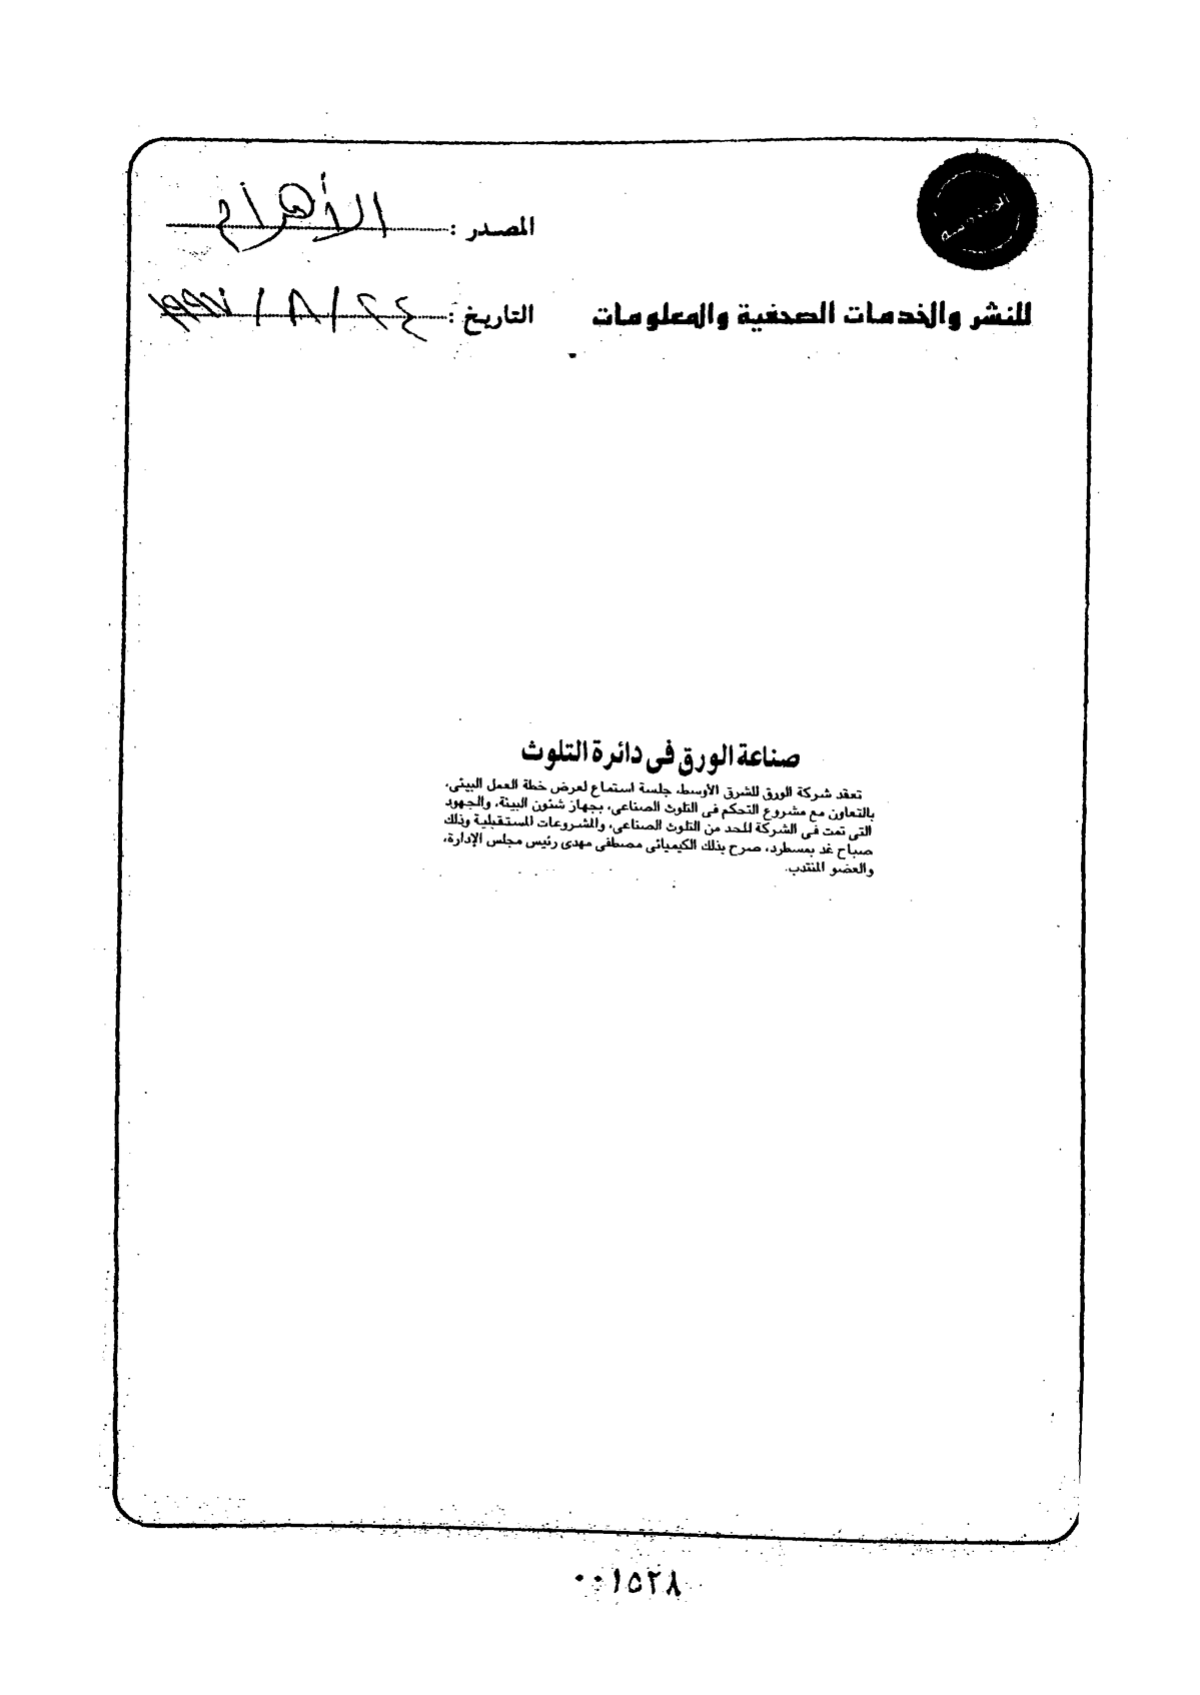 المصدر : الأهرام
للنشر والخدمات الصحفية والمعلومات
التاريخ : ٢٤ / ٨ / ١٩٩٧
صناعة الورق فى دائرة التلوث
تعقد شركة الورق للشرق الأوسط، جلسة استماع لعرض خطة العمل البيئى،
بالتعاون مع مشروع التحكم فى التلوث الصناعى، بجهاز شئون البيئة، والجهود
التى تمت فى الشركة للحد من التلوث الصناعى، والمشروعات المستقبلية وذلك
صباح غد بمسطرد، صرح بذلك الكيميائى مصطفى مهدى رئيس مجلس الإدارة،
والعضو المنتدب.
٠٠١٥٢٨